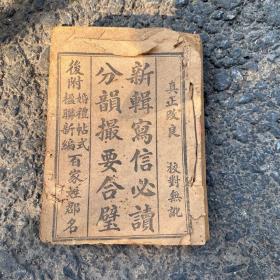 真正改良　校對無訛
新輯寫信必讀
分韻撮要合璧
後附婚禮帖式百家姓郡名
楹聯新編